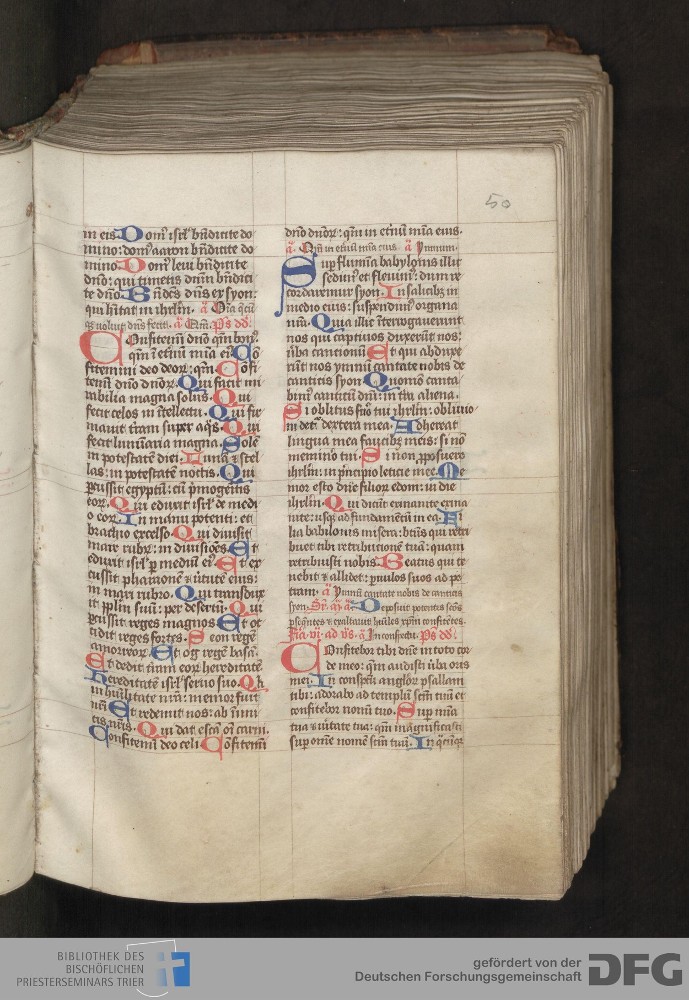 50
in eis Domꝰ isrl' bn̄dicite do
mino: domꝰ aaron bn̄dicite do
mino Domꝰ leui bn̄dicite
dn̄o: qui timetis dn̄m bn̄dici
te dn̄o Bn̄dc̄s dn̄s ex syon:
qui hītat in ihrlm̄. a Om̄a
uoluit dn̄s fecit. a Qm̄. Ps dd'.
Confitemī dn̄o qm̄ bonꝰ:
qm̄ ī et̄nū mīa eiꝰ Cō
fitemini deo deoꝝ: qm̄. Cōfi
temī dn̄o dn̄oꝝ. Qui facit mi
rabilia magna solus. Qui
fecit celos in ītellectu. Qui fir
mauit t̄ram super aq̄s. Qui
fecit lumīaria magna. Solē
in potestatē diei. Lunā ⁊ stel
las: in potestatē noctis. Qui
ꝑcussit egyptū: cū p̄mogēitis
eoꝝ. Qui eduxit isrl' de medi
o eoꝝ. In manu potenti: et
brachio excelso. Qui diuisit
mare rubꝝ: in diuisiōes Et
eduxit isrl' ꝑ mediū eiꝰ Et ex
cussit pharaonē ⁊ ūtutē eius:
in mari rubro. Qui transdux
it ppl'm suū: per desertū. Qui
ꝑcussit reges magnos Et oc
cidit reges fortes. Seon regē
amorreoꝝ Et og regē basā.
Et dedit t̄ram eoꝝ hereditatē
Hereditatē isrl' seruo suo. Qꝛ
in huīlitate nr̄a: memor fuit
nr̄i Et redemit nos: ab īimi
cis nr̄is. Qui dat escā oī carni.
Confitemī deo celi Cōfitemī
dn̄o dn̄oꝝ: qm̄ in et̄nū mīa eius.
a. Qm̄ in et̄nū mīa eius. a Ymnum.
Sup̄ flumīa babylonis illic
sedimꝰ et fleuimꝰ: dum re
cordaremur syon. In salicibꝫ in
medio eius: suspendimꝰ organa
nr̄a. Quia illic īterrogauerunt
nos qui captiuos duxerūt nos:
ūba cantionū Et qui abduxe
rūt nos ymnū cantate nobis de
canticis syon Quomō canta
bimꝰ canticū dn̄i: in t̄ra aliena.
Si oblitus fūo tui ihrlm̄: obliuio
ni det̄ dextera mea. Adhereat
lingua mea faucibꝫ meis: si nō
meminō tui. Si nō ꝓposuero
ihrlm̄: in p̄ncipio leticie mee Me
mor esto dn̄e filioꝝ edom: in die
ihrlm̄. Qui dicūt exinanite exina
nite: usqꝫ ad fundamētū in ea. Fi
lia babilonis misera: btūs qui retri
buet tibi retributionē tuā: quam
retribuisti nobis. Beatus qui te
nebit ⁊ allidet: ꝑuulos suos ad pe
tram. a Ymnū cantate nobis de canticis
syon. a. Deposuit potentes
ꝑseq̄ntes ⁊ exaltauit huīles xp̄m confitētes.
Fīa. vi. ad vs. a In conspectu. Ps dd'.
Confitebor tibi dn̄e in toto cor
de meo: qm̄ audisti ūba oris
mei. In conspc̄u angloꝝ psallam
tibi: adorabo ad templū sc̄m tuū et
confitebor noīni tuo. Sup̄ mīa
tua ⁊ ūitate tua: qm̄ magnificasti
sup̄ om̄e nomē sc̄m tuū. In q̄cūqꝫ
BIBLIOTHEK DES
BISCHÖFLICHEN
PRIESTERSEMINARS TRIER
gefördert von der
Deutschen Forschungsgemeinschaft
DFG